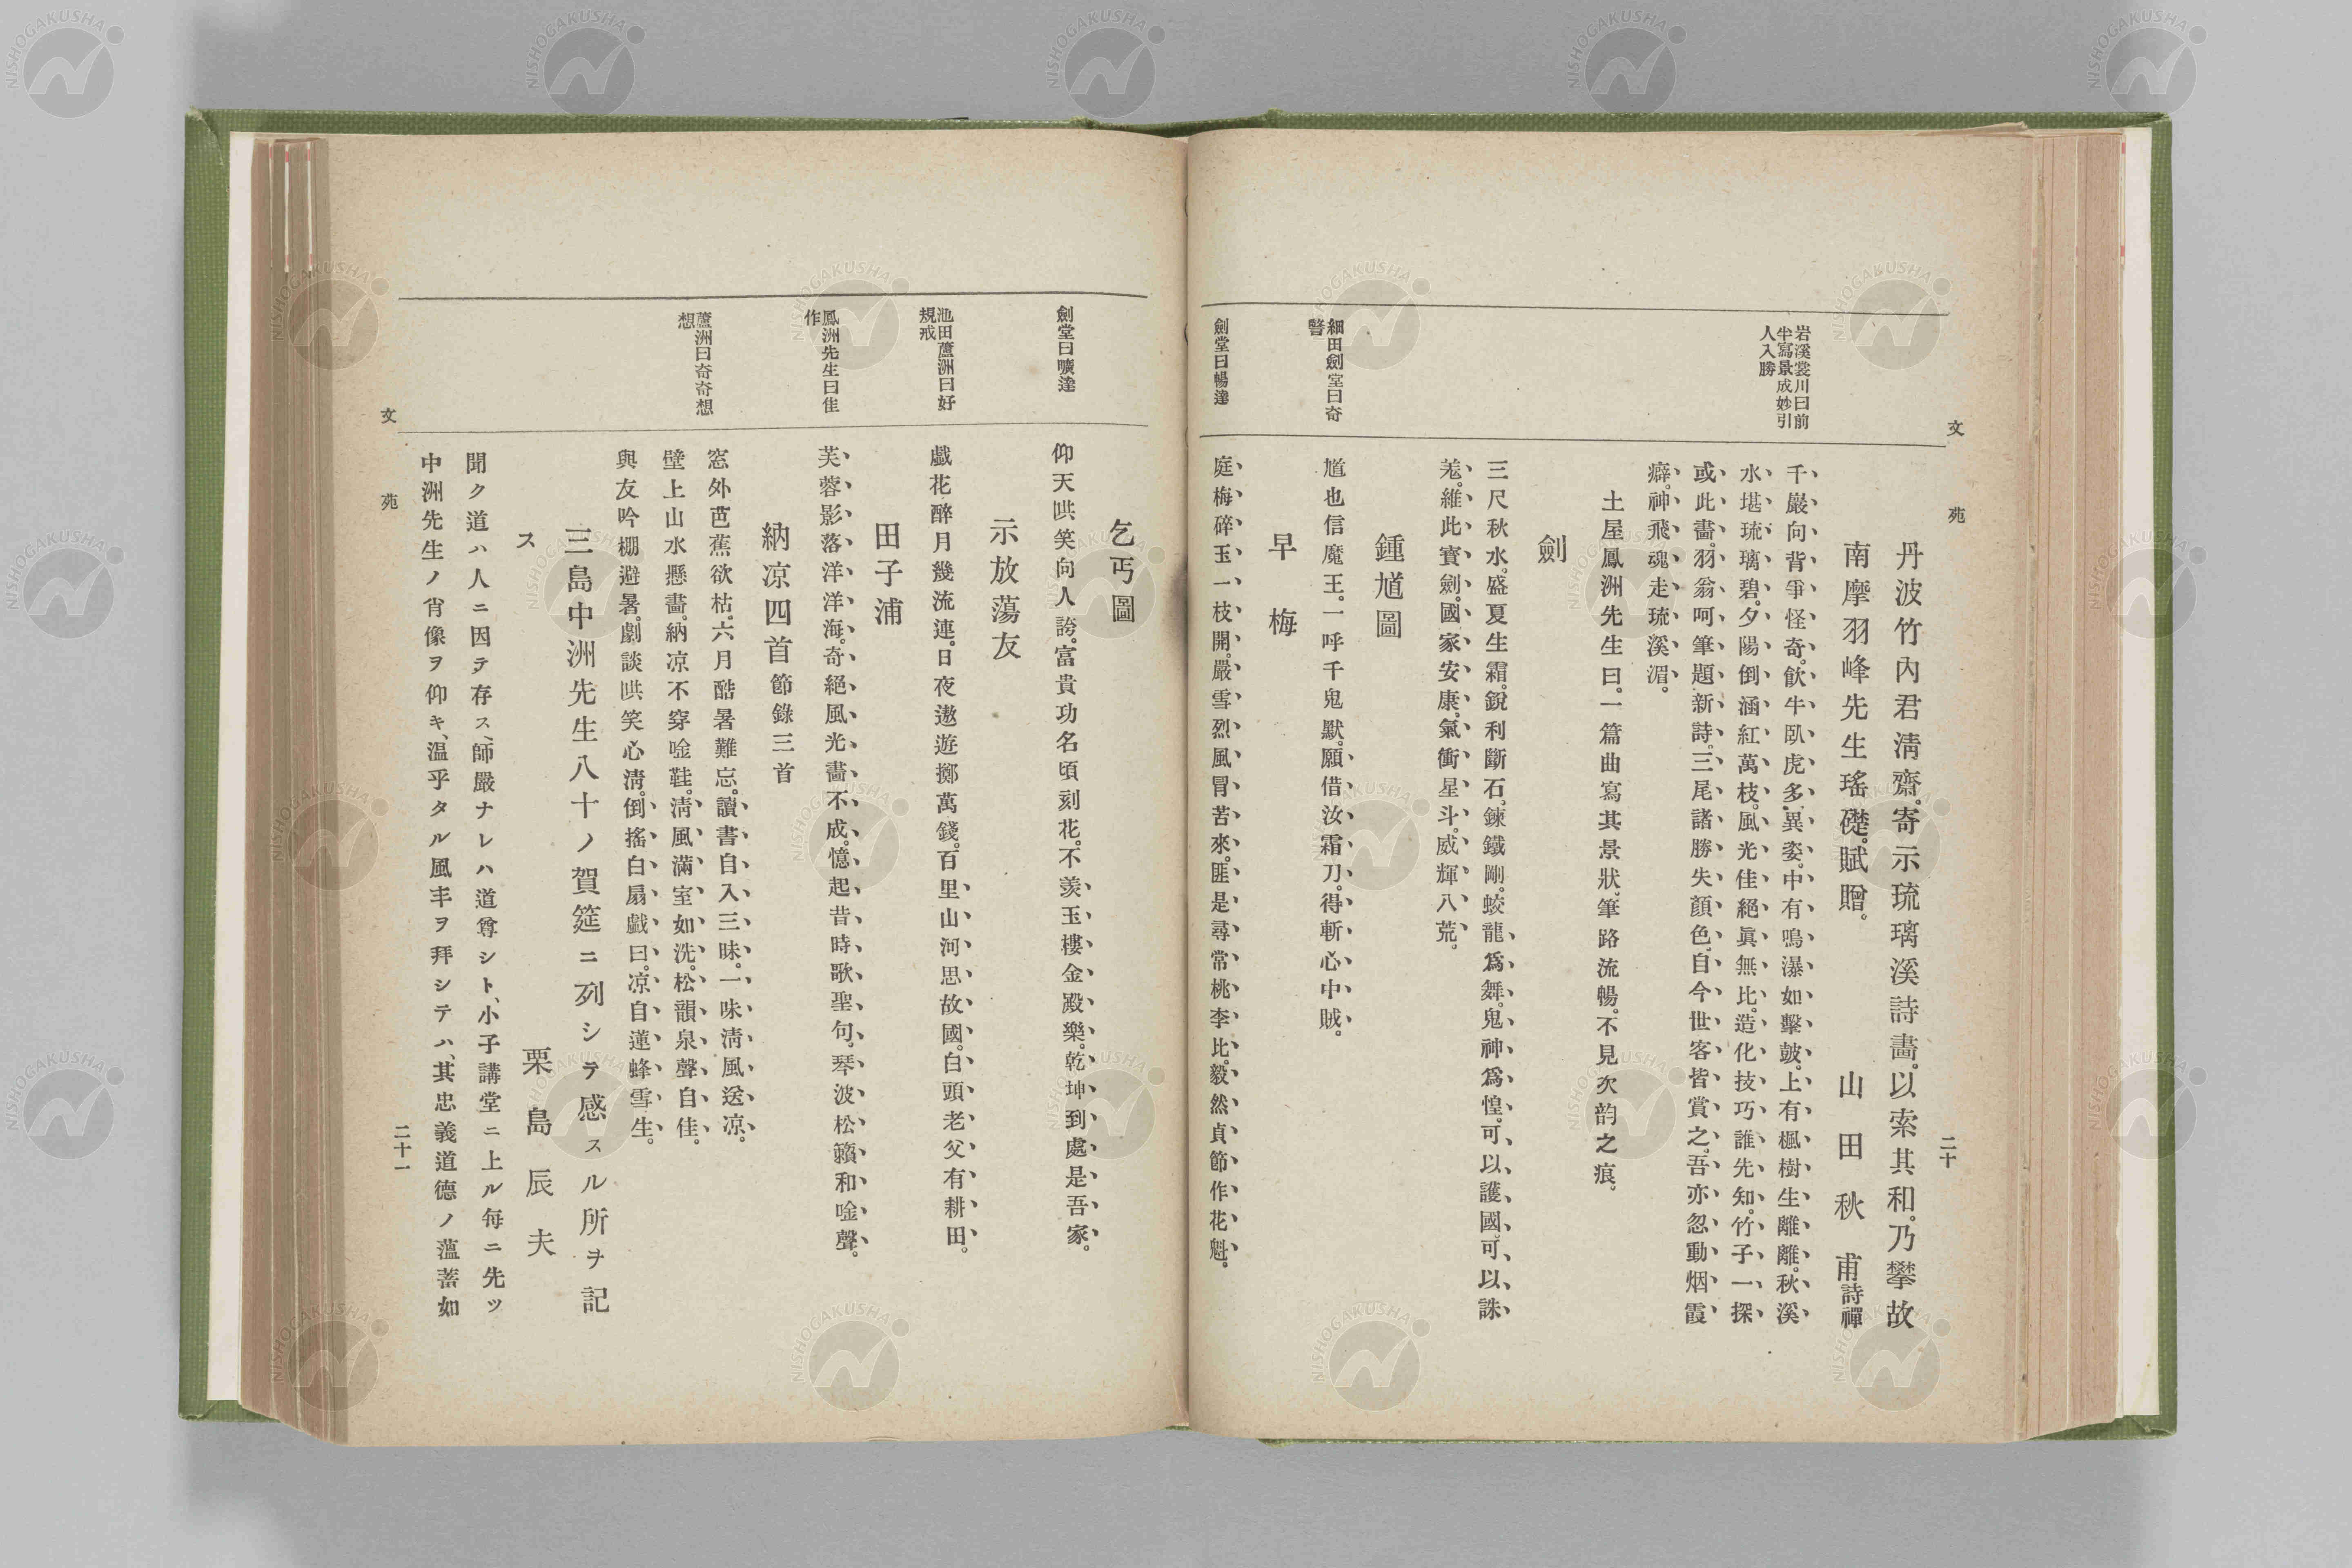 文苑
二十
岩溪裳川曰前
半寫景成妙引
人入勝
細田劍堂曰奇
警
劍堂曰暢達
丹波竹內君淸齋。寄示琉璃溪詩畵。以索其和。乃攀故
南摩羽峰先生瑤礎。賦贈。 山田秋甫詩禪
千巖向背爭怪奇。飮牛臥虎多異姿。中有鳴瀑如擊皷。上有楓樹生離離。秋溪
水堪琉璃碧。夕陽倒涵紅萬枝。風光佳絕眞無比。造化技巧誰先知。竹子一探
或此畵。羽翁呵筆題新詩。三尾諸勝失顏色。自今世客皆賞之。吾亦忽動烟霞
癖。神飛魂走琉溪湄。
土屋鳳洲先生曰。一篇曲寫其景狀、筆路流暢。不見次韵之痕。
劍
三尺秋水。盛夏生霜。銳利斷石。鍊鐵剛。蛟龍爲舞。鬼神爲惶。可以護國。可以誅
羗。維此寶劍。國家安康。氣衝星斗。威輝八荒。
鍾馗圖
馗也信魔王。一呼千鬼默。願借汝霜刀。得斬心中賊。
早梅
庭梅碎玉一枝開。嚴雪烈風冒苦來。匪是尋常桃李比。毅然貞節作花魁。
劍堂曰曠達
池田蘆洲曰好
規戒
鳳洲先生曰佳
作
蘆洲曰奇奇想
想
乞丐圖
仰天哄笑向人誇。富貴功名頃刻花。不羨玉樓金殿樂。乾坤到處是吾家。
示放蕩友
戲花醉月幾流連。日夜遨遊擲萬錢。百里山河思故國。白頭老父有耕田。
田子浦
芙蓉影落洋洋海。奇絕風光畵不成。憶起昔時歌聖句。琴波松籟和唫聲。
納凉四首節錄三首
窓外芭蕉欲枯。六月酷暑難忘。讀書自入三昧。一味淸風送凉。
壁上山水懸畵。納凉不穿唫鞋。淸風滿室如洗。松韻泉聲自佳。
與友吟棚避暑。劇談哄笑心淸。倒搖白扇戲曰。凉自蓮蜂雪生。
三島中洲先生八十ノ賀筵ニ列シテ感スル所ヲ記
ス
栗島辰夫
聞ク道ハ人ニ因テ存ス、師嚴ナレハ道尊シト、小子講堂ニ上ル每ニ先ツ
中洲先生ノ肖像ヲ仰キ、温乎タル風丰ヲ拜シテハ、其忠義道德ノ薀蓄如
文苑
二十一